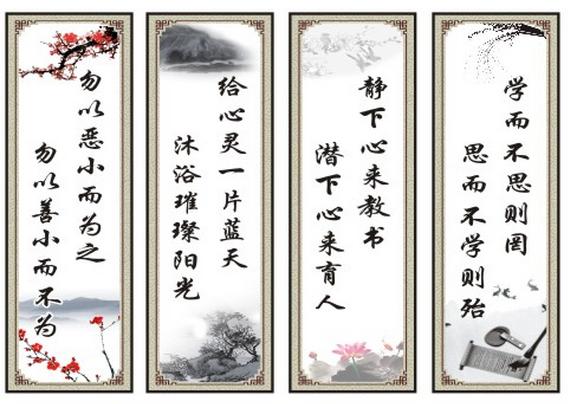 勿以恶小而为之
勿以善小而不为
给心灵一片蓝天
沐浴璀璨阳光
静下心来教书
潜下心来育人
学而不思则罔
思而不学则殆